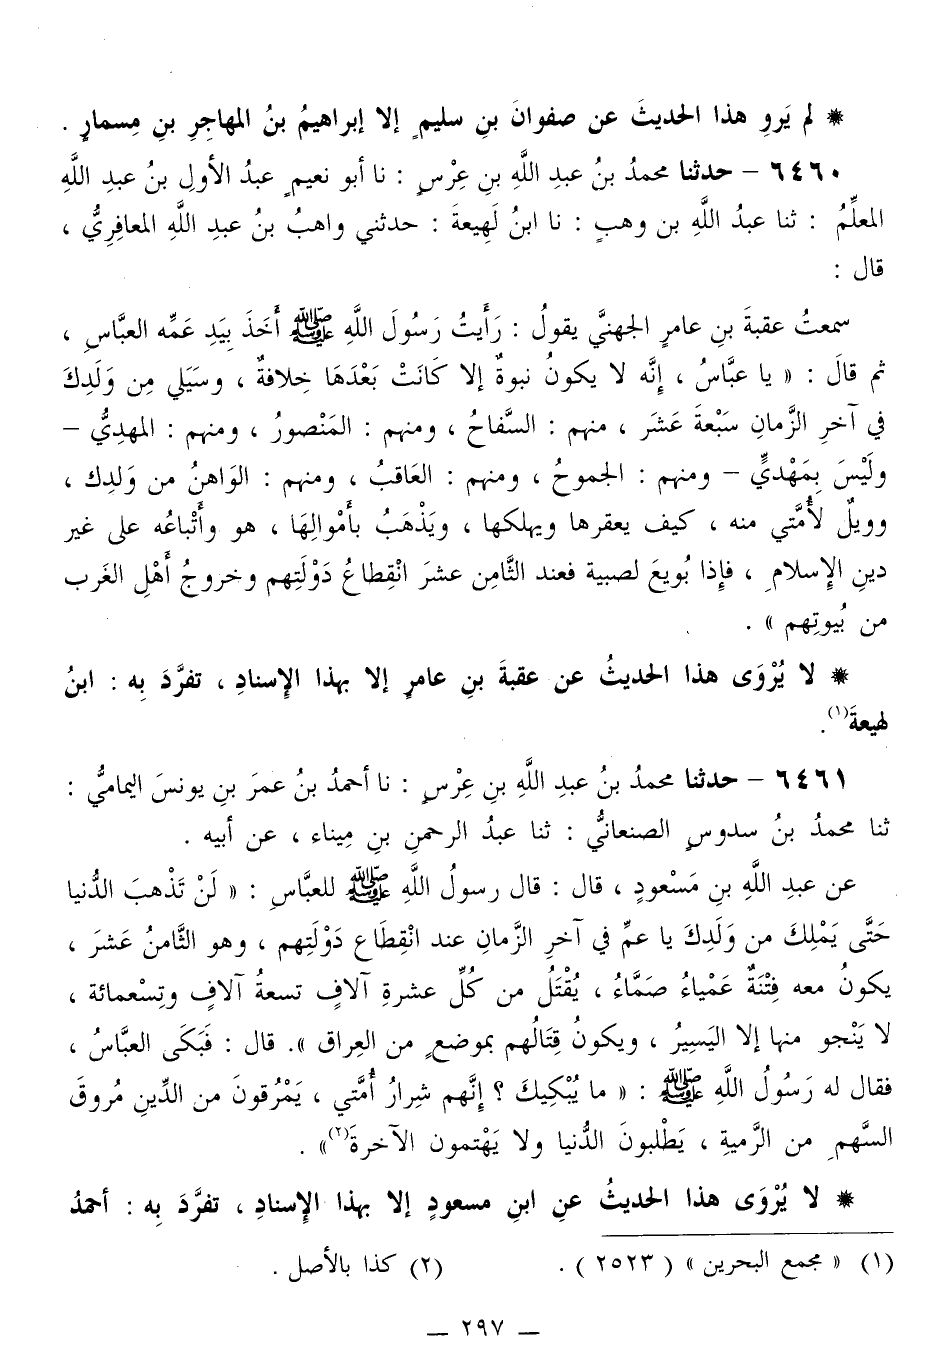 * لم يَروِ هذا الحديثَ عن صفوانَ بنِ سليمٍ إلا إبراهيمُ بنُ المهاجِرِ بنِ مِسمارٍ .
٦٤٦٠ – حدثنا محمدُ بنُ عبدِ اللَّهِ بنِ عِرْسٍ : نا أبو نعيمٍ عبدُ الأولِ بنُ عبدِ اللَّهِ
المعلِّمُ : ثنا عبدُ اللَّهِ بن وهبٍ : نا ابنُ لَهِيعةَ : حدثني واهبُ بنُ عبدِ اللَّهِ المعافِرِيُّ ،
قال :
سمعتُ عقبةَ بنِ عامرٍ الجهنيَّ يقولُ : رَأَيتُ رَسُولَ اللَّهِ ﷺ أَخَذَ بِيَدِ عَمِّه العبَّاسِ ،
ثم قالَ : « يا عبَّاسُ ، إِنَّه لا يكونُ نبوةٌ إلا كَانَتْ بَعْدَهَا خِلافةٌ ، وسَيَلي مِن وَلَدِكَ
في آخرِ الزَّمانِ سَبْعةَ عَشَرَ ، منهم : السَّفاحُ ، ومنهم : المَنْصورُ ، ومنهم : المهدِيُّ –
ولَيْسَ بِمَهْديٍّ – ومنهم : الجموحُ ، ومنهم : العَاقبُ ، ومنهم : الوَاهنُ من وَلدِك ،
وويلٌ لأُمَّتي منه ، كيف يعقرها ويهلكها ، ويَذْهَبُ بأَمْوالِهَا ، هو وأَتْباعُه على غير
دينِ الإِسلامِ ، فَإِذا بُويعَ لصبية فعند الثَّامِن عشرَ انْقِطاعُ دَوْلَتِهم وخروجُ أَهْلِ الغَرب
من بُيوتِهم » .
* لا يُرْوَى هذا الحديثُ عن عقبةَ بنِ عامرٍ إلا بهذا الإِسنادِ ، تفرَّدَ بِه : ابنُ
لهيعةَ(١).
٦٤٦١ – حدثنا محمدُ بنُ عبدِ اللَّهِ بنِ عِرْسٍ : نا أحمدُ بنُ عمرَ بنِ يونسَ اليماميُّ :
ثنا محمدُ بنُ سدوسٍ الصنعانيُّ : ثنا عبدُ الرحمنِ بنِ مِيناء ، عن أبيه .
عن عبدِ اللَّهِ بنِ مَسْعودٍ ، قال : قال رسولُ اللَّهِ ﷺ للعبَّاسِ : « لَنْ تَذْهبَ الدُّنيا
حَتَّى يَمْلِكَ من وَلَدِكَ يا عمِّ في آخرِ الزَّمانِ عند انْقِطَاع دَوْلَتِهم ، وهو الثَّامنُ عَشَرَ ،
يكونُ معه فِتْنَةٌ عَمْياءُ صَمَّاءُ ، يُقْتَلُ من كُلِّ عشرةِ آلافٍ تسعةُ آلافٍ وتِسْعمائة ،
لا يَنْجو منها إلا اليَسِيرُ ، ويكونُ قِتَالُهم بموضعٍ من العِراق ». قال : فَبَكَى العبَّاسُ ،
فقال له رَسُولُ اللَّهِ ﷺ : « ما يُبْكِيكَ ؟ إِنَّهم شِرارُ أُمَّتي ، يَمْرُقونَ من الدِّينِ مُروقَ
السَّهمِ من الرَّميةِ ، يَطْلبونَ الدُّنيا ولا يَهْتمون الآخرةَ(٢)» .
* لا يُرْوَى هذا الحديثُ عنِ ابنِ مسعودٍ إلا بهذا الإِسنادِ ، تفرَّدَ بِه : أحمدُ
(١) « مجمع البحرين » ( ٢٥٢٣ ) . (٢) كذا بالأصل .
– ٢٩٧ –